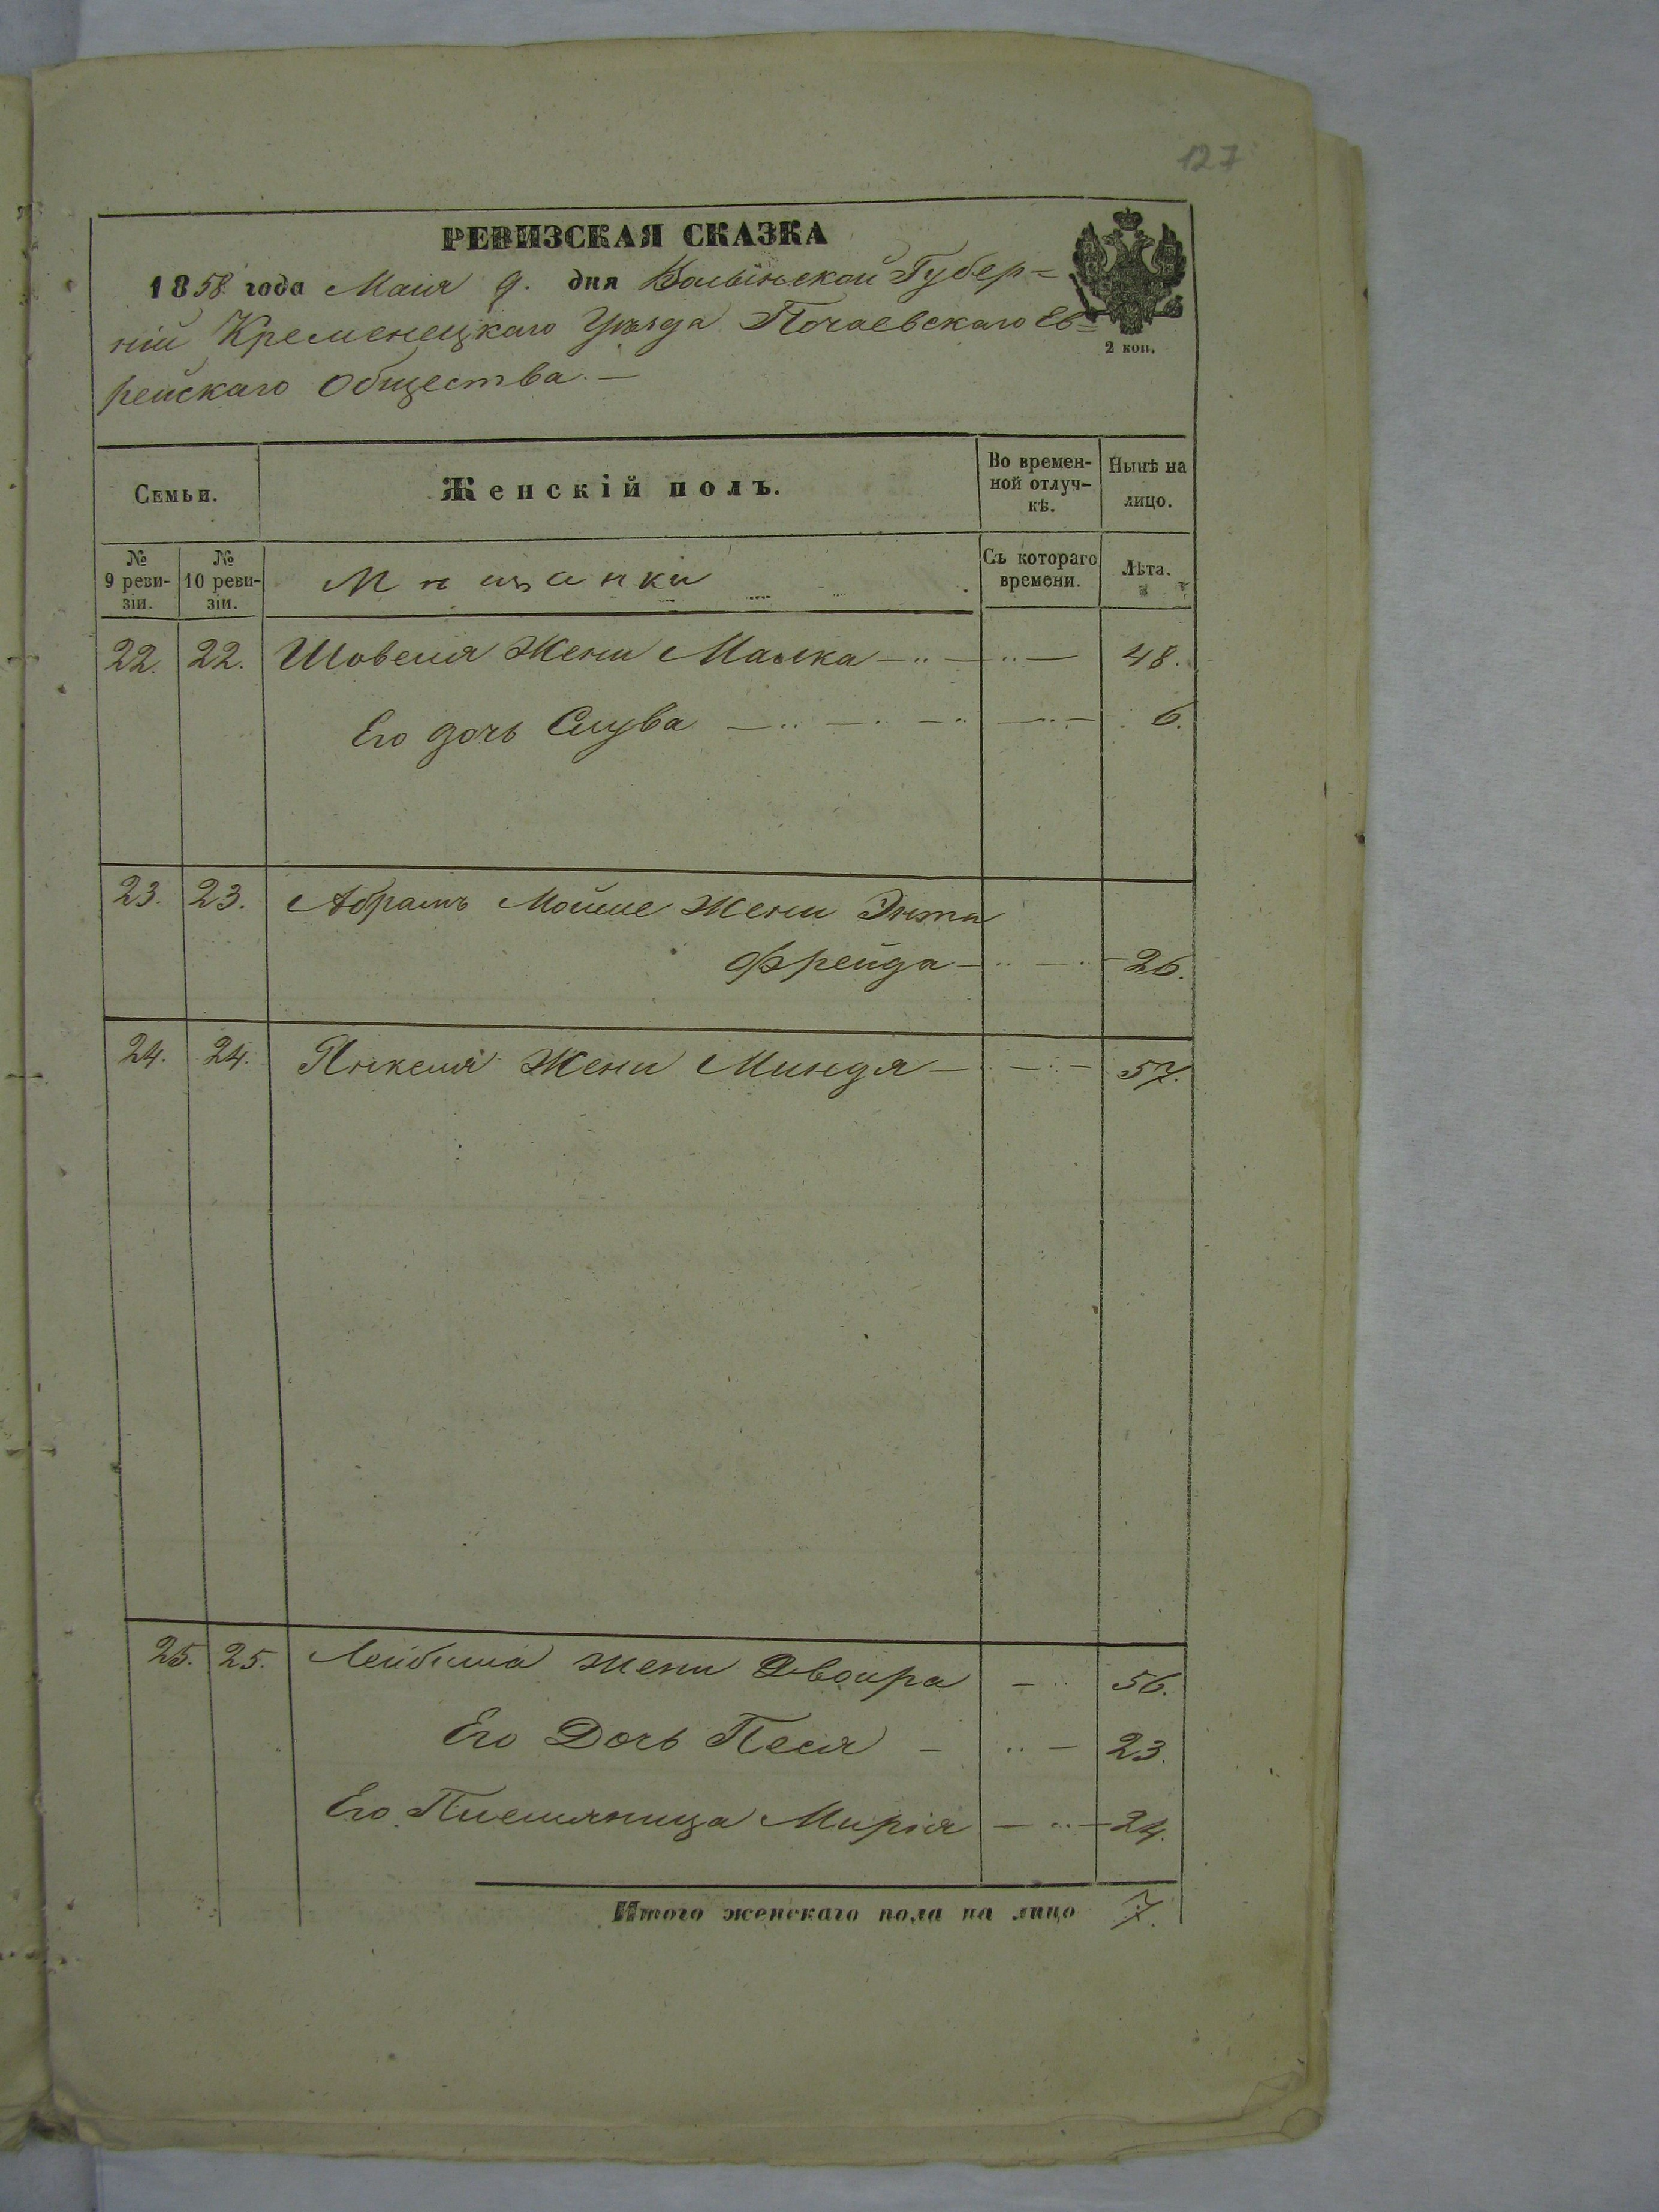 127
РЕВИЗСКАЯ СКАЗКА
1858 года Маія 9. дня Волынской Губер=
ніи Кременецкаго Уѣзда Почаевскаго Ев=
рейскаго Общества. —
2 коп.
Семьи.
Женскій полъ.
Во времен-
ной отлуч-
кѣ.
Нынѣ на
лицо.
№
9 реви-
зіи.
№
10 реви-
зіи.
Мѣщанки
Съ котораго
времени.
Лѣта.
22. 22. Шовеля Жени Малка 48.
Его дочь Слува 6.
23. 23. Абрамъ Мойше Жени Энта
Фрейда 26.
24. 24. Янкеля Жени Миндя 57.
25. 25. Лейбиша жени Двойра 56.
Его Дочь Песя 23.
Его Племяница Мирія 24.
Итого женскаго пола на лицо 7.